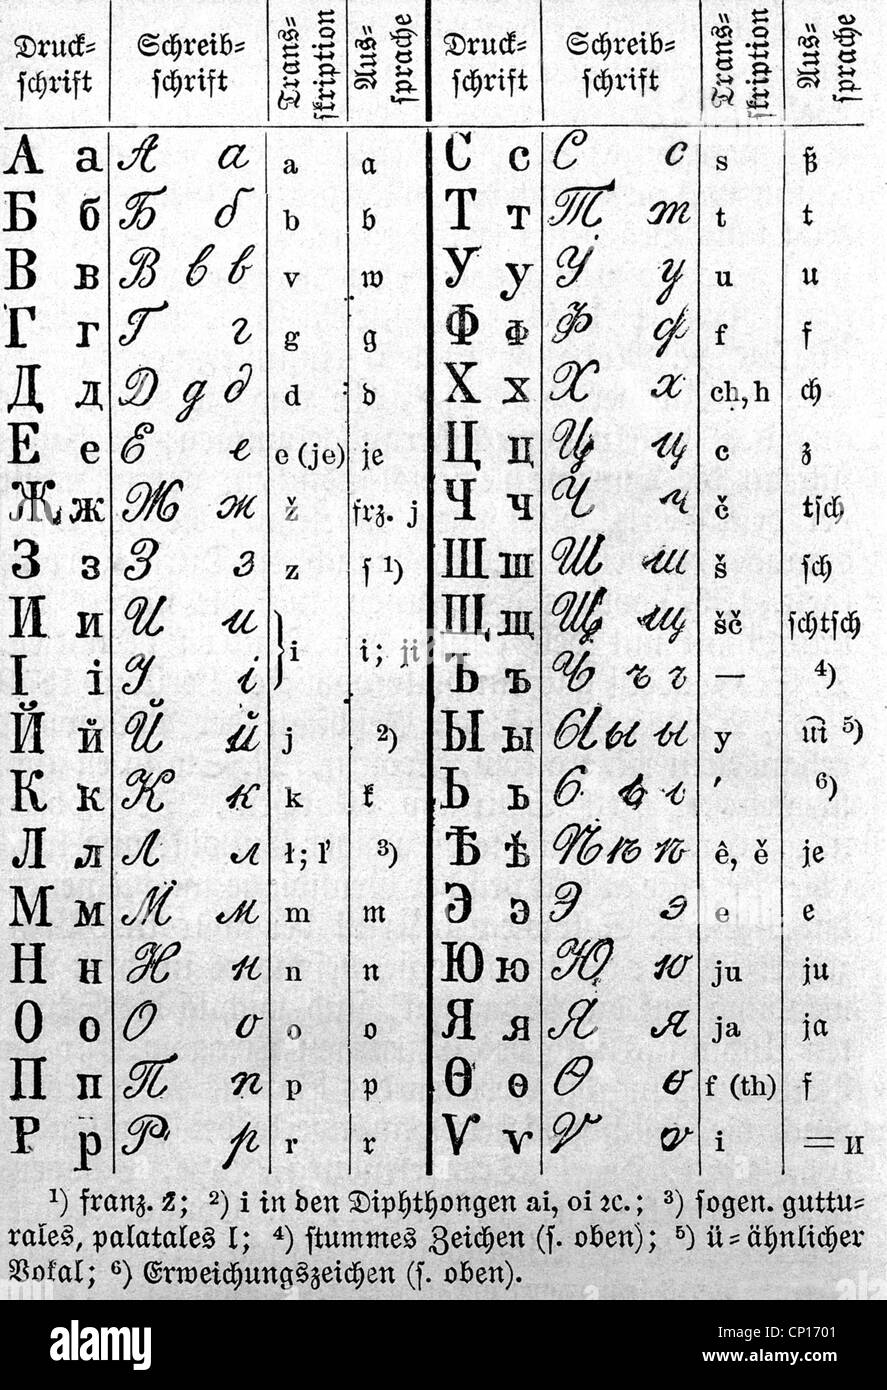 Druck=schrift Schreib=schrift Trans=skription Aus=sprache Druck=schrift Schreib=schrift Trans=skription Aus=sprache
А а А а a a С с С с s ß
Б б Б б b b Т т Т т t t
В в В в в v w У у У у u u
Г г Г г g g Ф ф Ф ф f f
Д д Д д д d d Х х Х х ch, h ch
Е е Е е e (je) je Ц ц Ц ц c z
Ж ж Ж ж ž frz. j Ч ч Ч ч č tsch
З з З з z s ¹) Ш ш Ш ш š sch
И и И и i i; ji Щ щ Щ щ šč schtsch
І і І і Ъ ъ Ъ ъ ъ — ⁴)
Й й Й й j ²) Ы ы Ы ы ы y ⁵)
К к К к k k Ь ь Ь ь ь ′ ⁶)
Л л Л л ł; l' ³) Ѣ ѣ Ѣ ѣ ѣ ê, ě je
М м М м m m Э э Э э e e
Н н Н н n n Ю ю Ю ю ju ju
О о О о o o Я я Я я ja ja
П п П п p p Ѳ ѳ Ѳ ѳ f (th) f
Р р Р р r r Ѵ ѵ Ѵ ѵ i = и
¹) franz. z; ²) i in den Diphthongen ai, oi ꝛc.; ³) sogen. guttu=
rales, palatales l; ⁴) stummes Zeichen (s. oben); ⁵) ü=ähnlicher
Vokal; ⁶) Erweichungszeichen (s. oben).
alamy
Image ID: CP1701
www.alamy.com